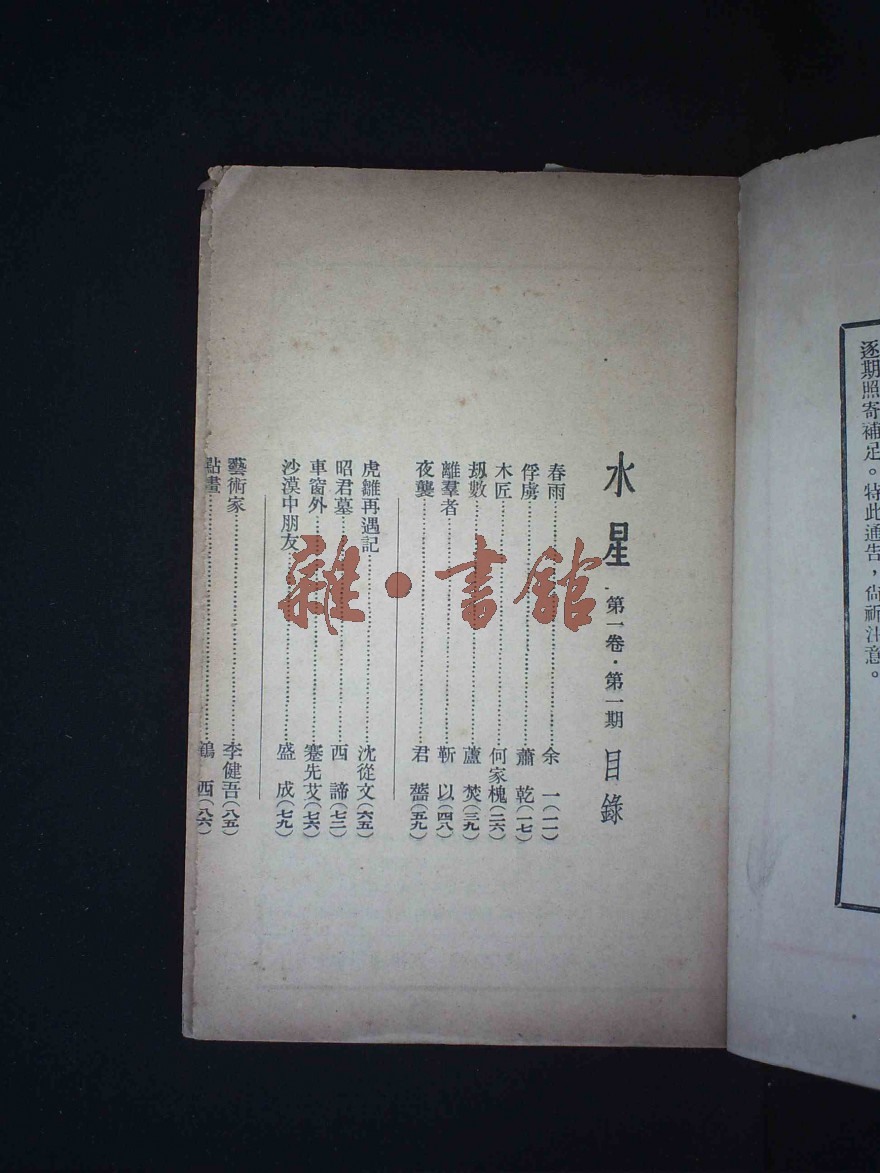 逐期照寄補足。特此通告，尙祈注意。
水星 第一卷·第一期 目錄
春雨 余一(一一)
俘虜 蕭乾(一七)
木匠 何家槐(二六)
刼數 蘆焚(三九)
離羣者 靳以(四八)
夜襲 君蕾(五九)
虎雛再遇記 沈從文(六五)
昭君墓 西諦(七二)
車窗外 蹇先艾(七六)
沙漠中朋友 盛成(七九)
藝術家 李健吾(八五)
點畫 鶴西(八六)
雜·書館